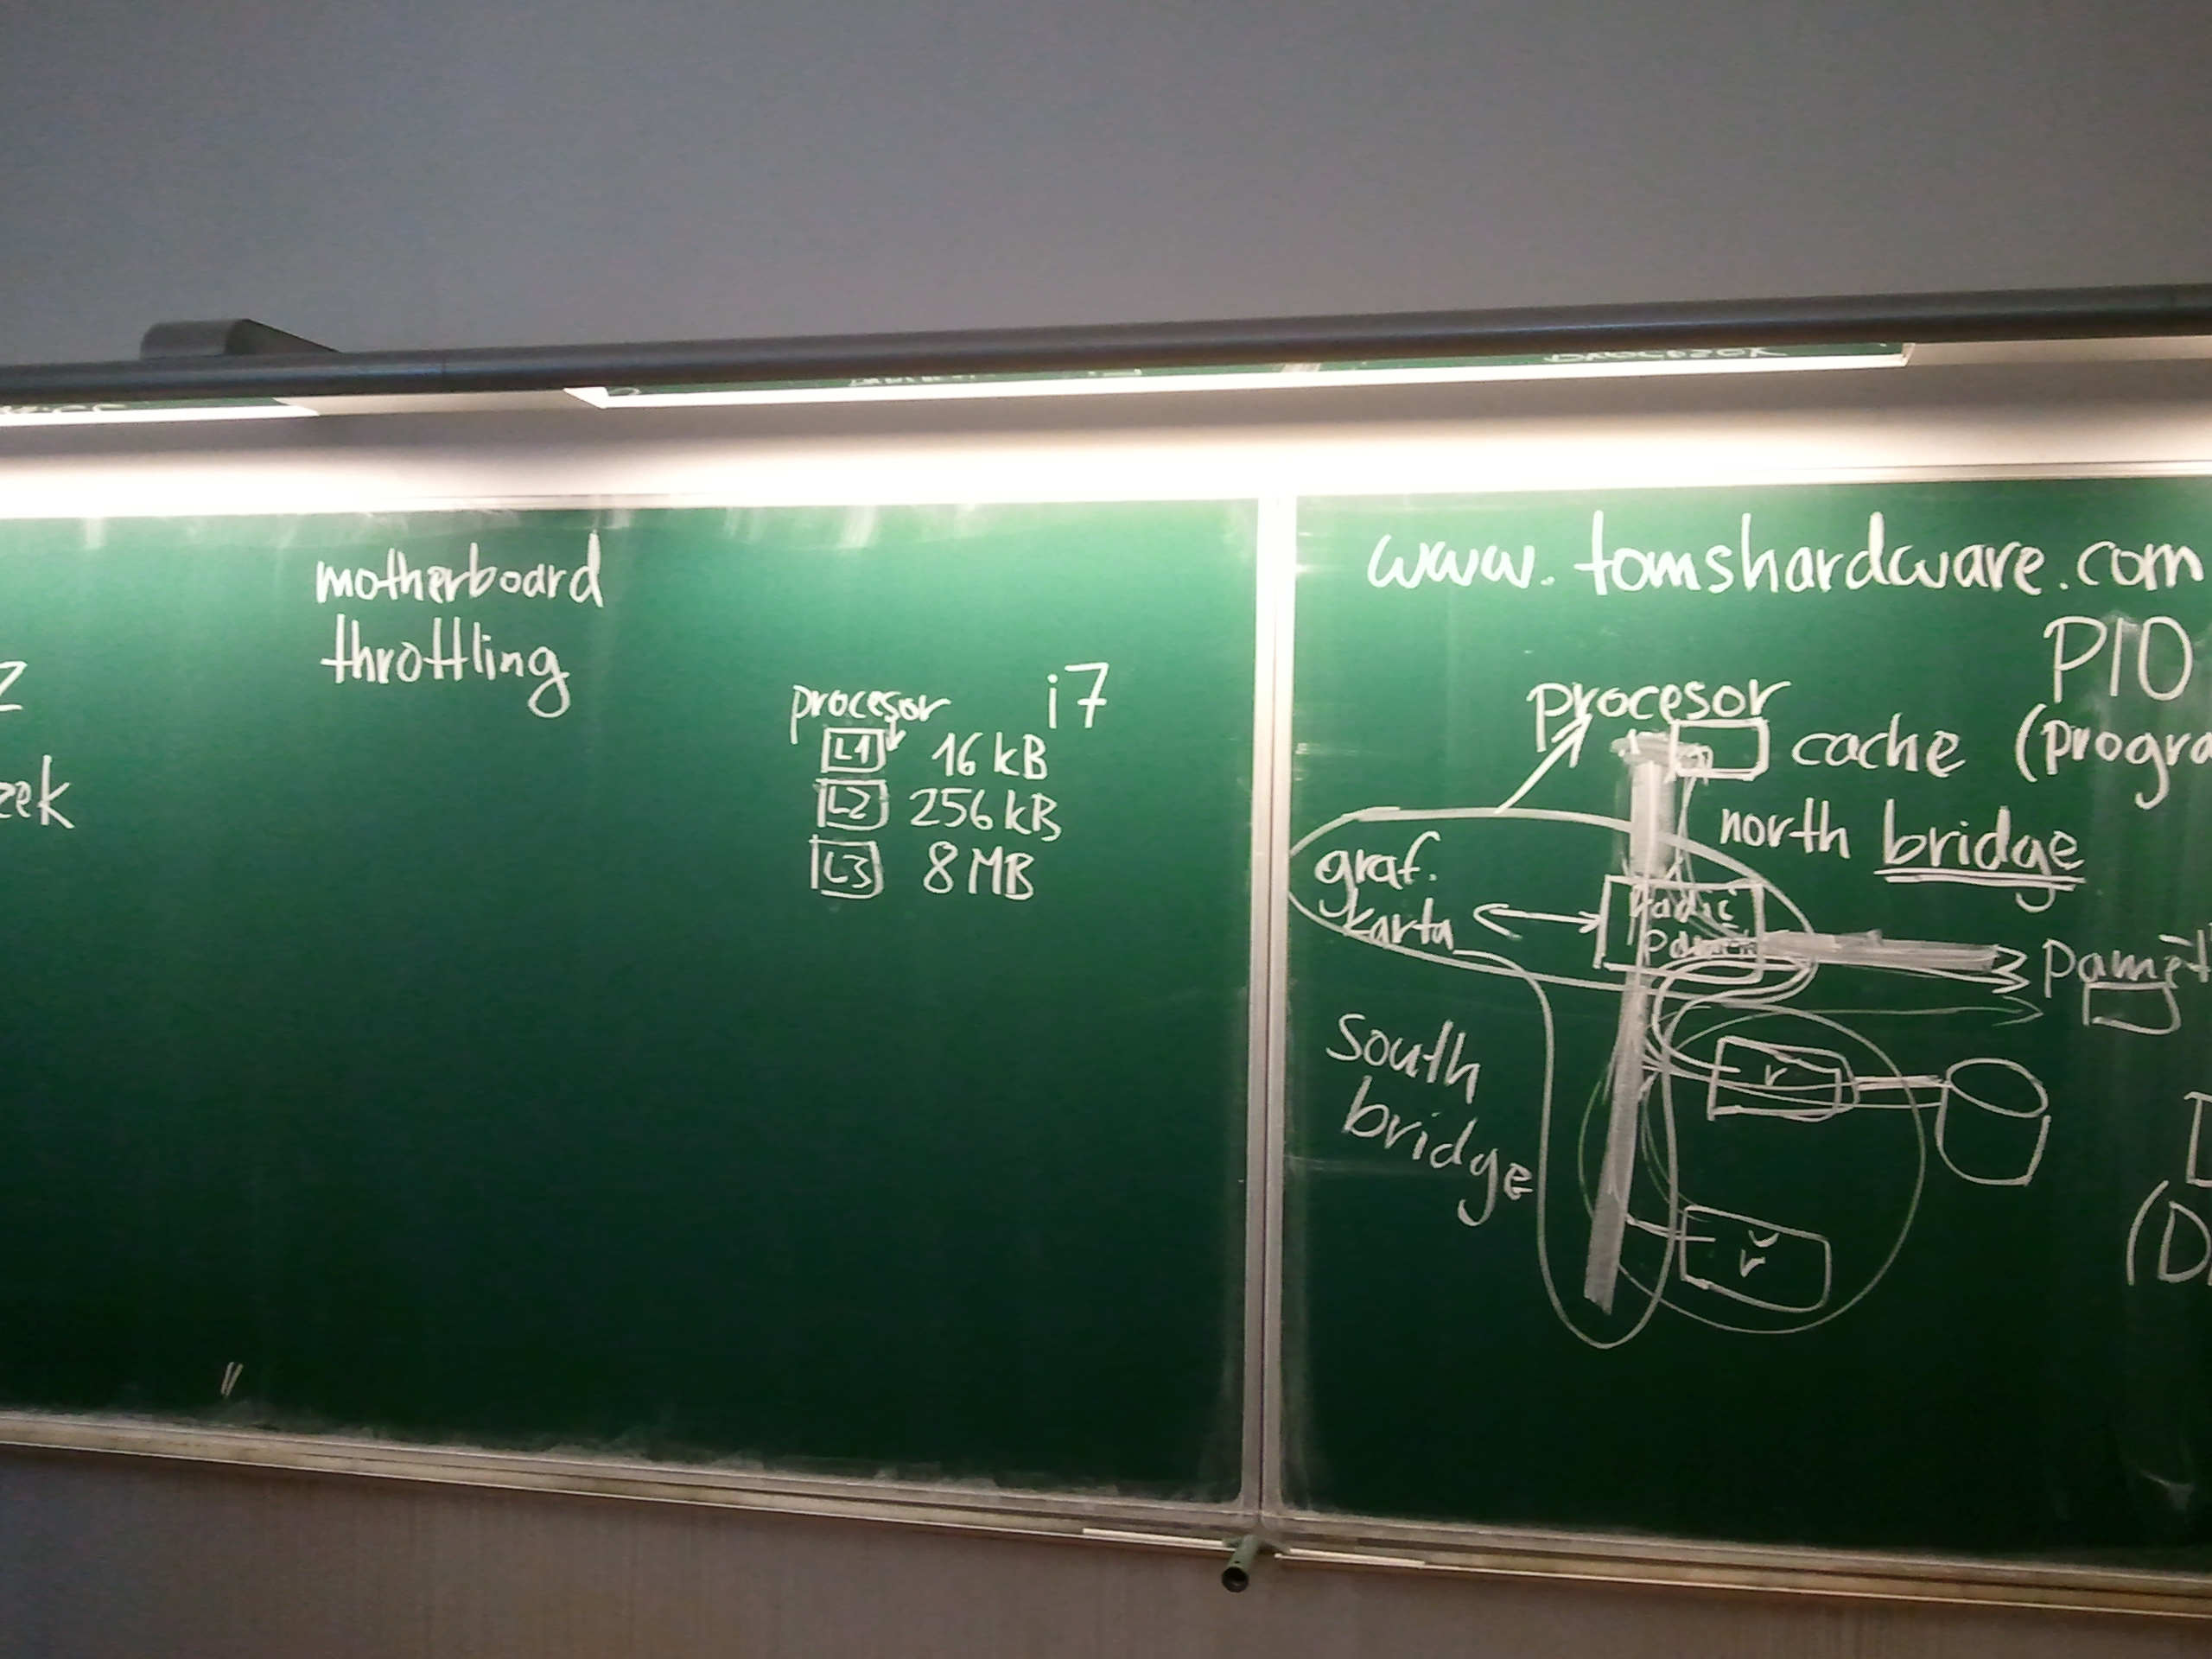 motherboard
throttling
zek
procesor i7
L1 16 kB
L2 256 kB
L3 8 MB
www.tomshardware.com
PIO
procesor
cache (progra
north bridge
graf.
karta
řadič
paměti
paměť
south
bridge
ř
ř
(D